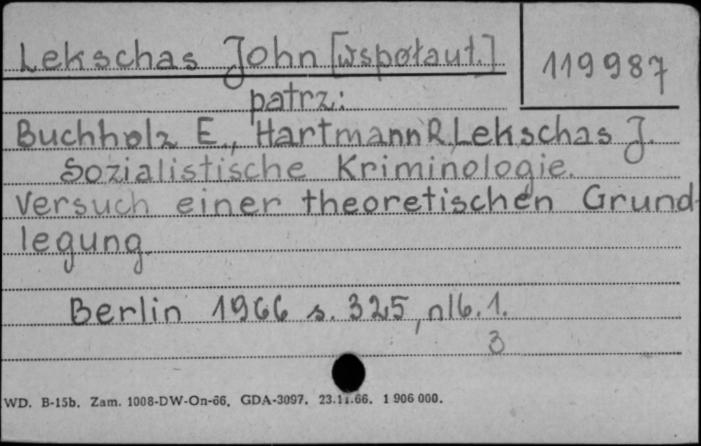 Lekschas John [współaut.]
119987
patrz:
Buchholz E., Hartmann R, Lekschas J.
Sozialistische Kriminologie.
Versuch einer theoretischen Grund-
legung.
Berlin 1966 s. 325, nlb. 1.
3
WD. B-15b. Zam. 1008-DW-On-66. GDA-3097. 23.11.66. 1 906 000.